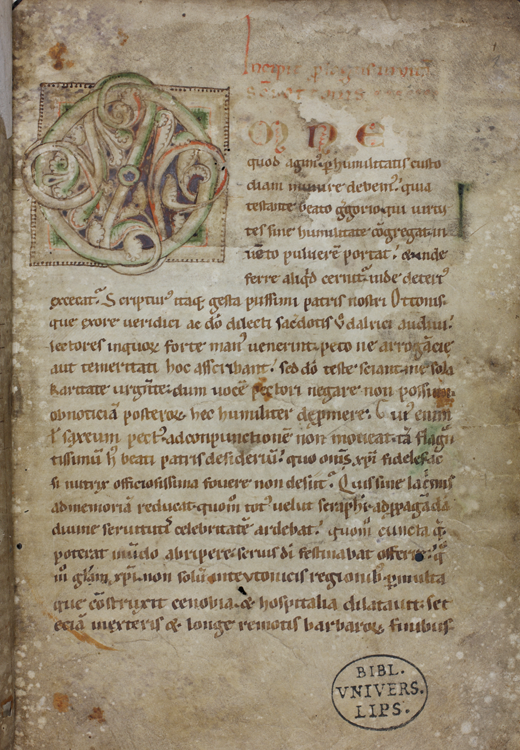 Incipit prologus in vita
OMNE
quod agim᷒ ꝑ humilitatis custo
diam munire debem᷒. quia
testante beato ḡgorio. qui virtu
tes sine humilitate cōgregat. in
uēto puluerē portat. & unde
ferre aliqͥd cernit᷒. inde deteri᷒
excecat᷒. Scriptur᷒ itaq; gesta piissimi patris nostri Ottonis.
que exore veridici ac dō dilecti sacdotis Vdalrici audiui.
lectores inquoꝝ forte man᷒ venerint. peto ne arrogācie
aut temeritati hoc asscribant. sed dō teste sciant. me sola
karitate urgēnte. dum vocē pectori negare non possum.
obnoticiā posteroꝝ hec humiliter dep̄mere. Cui᷒ enim
ł saxeum pect᷒. adconpunctionē non moueat. tā flagn̄
tissimū h᷒ beati patris desideriū. quo om̄s xp̄i fideles ac
si nutrix officiosissima fouere non desiit. Quis sine lacͥmis
admemoriā reducat. quom̄ tot᷒ velut seraphī. adp̄pagādā
diuine seruitutis celebritatē ardebat. quom̄ cuncta q̄
poterat mūdo abripere. seruus dī festinabat offerre. q̄
m̄ glām xp̄i. non solū inteutonicis regionib; ꝑ multa
que cōstruxit cenobia. & hospitalia dilatauit. set
eciā inexteris & longe remotis barbaroꝝ finibus
BIBL.
VNIVERS.
LIPS.